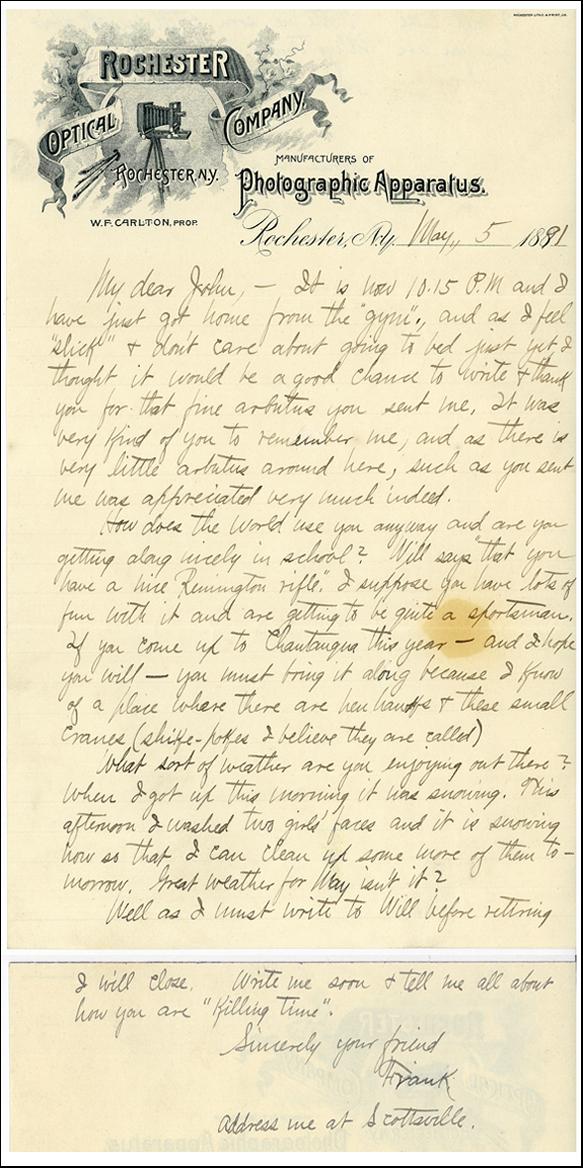 ROCHESTER LITHO. & PRINT. CO.
ROCHESTER
OPTICAL COMPANY.
ROCHESTER, N.Y.
W. F. CARLTON, PROP.
MANUFACTURERS OF
Photographic Apparatus.
Rochester, N.Y. May, 5 1891
My dear John, — It is now 10.15 P.M and I
have just got home from the "gym"., and as I feel
"slick" & don't care about going to bed just yet I
thought it would be a good chance to write & thank
you for that fine arbutus you sent me. It was
very kind of you to remember me, and as there is
very little arbutus around here, such as you sent
me was appreciated very much indeed.
How does the world use you anyway and are you
getting along nicely in school? Will says "that you
have a nice Remington rifle". I suppose you have lots of
fun with it and are getting to be quite a sportsman.
If you come up to Chautauqua this year — and I hope
you will — you must bring it along because I know
of a place where there are hen hawks & these small
cranes (shike-pokes I believe they are called)
What sort of weather are you enjoying out there?
When I got up this morning it was snowing. This
afternoon I washed two girls' faces and it is snowing
now so that I can clean up some more of them to-
morrow. Great weather for May isn't it?
Well as I must write to Will before retiring
I will close. Write me soon & tell me all about
how you are "Killing time".
Sincerely your friend
Frank
Address me at Scottsville.